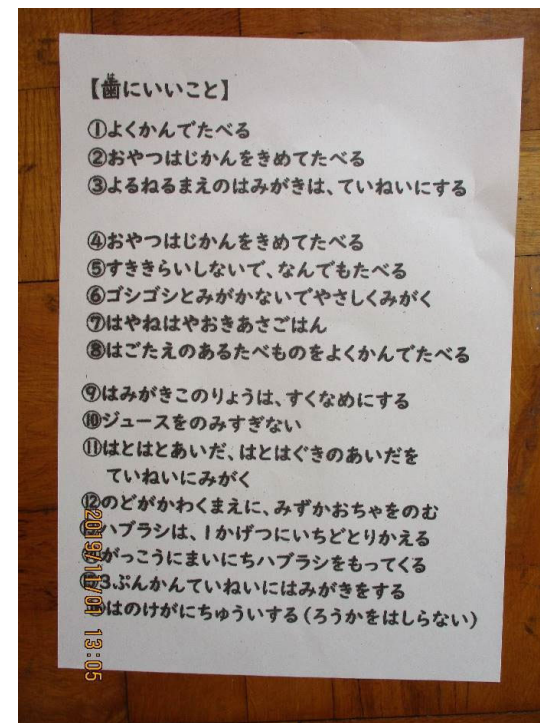 【歯にいいこと】
は
①よくかんでたべる
②おやつはじかんをきめてたべる
③よるねるまえのはみがきは、ていねいにする
④おやつはじかんをきめてたべる
⑤すききらいしないで、なんでもたべる
⑥ゴシゴシとみがかないでやさしくみがく
⑦はやねはやおきあさごはん
⑧はごたえのあるたべものをよくかんでたべる
⑨はみがきこのりょうは、すくなめにする
⑩ジュースをのみすぎない
⑪はとはとあいだ、はとはぐきのあいだを
ていねいにみがく
⑫のどがかわくまえに、みずかおちゃをのむ
ハブラシは、1かげつにいちどとりかえる
がっこうにまいにちハブラシをもってくる
3ぷんかんていねいにはみがきをする
はのけがにちゅういする(ろうかをはしらない)
2019/11/01 13:05